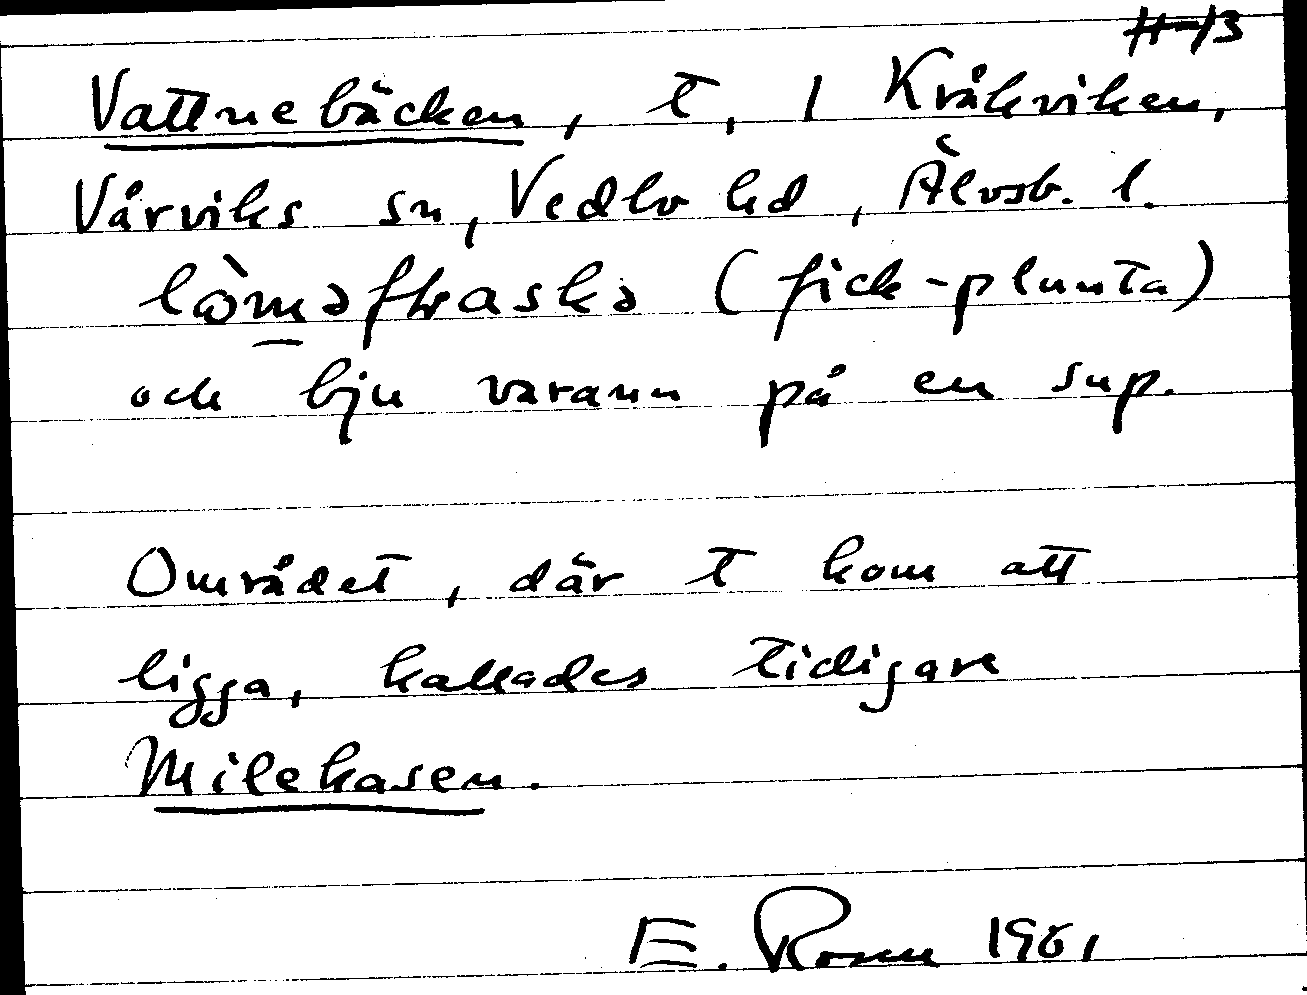 H-13
Vattnebäcken, t, 1 Kråkviken,
Vårviks sn, Vedbo hd, Älvsb. l.
(fick-plunta)
och bju varann på en sup.
Området, där t kom att
ligga, kallades tidigare
Milekasen.
E. Rosen 1961